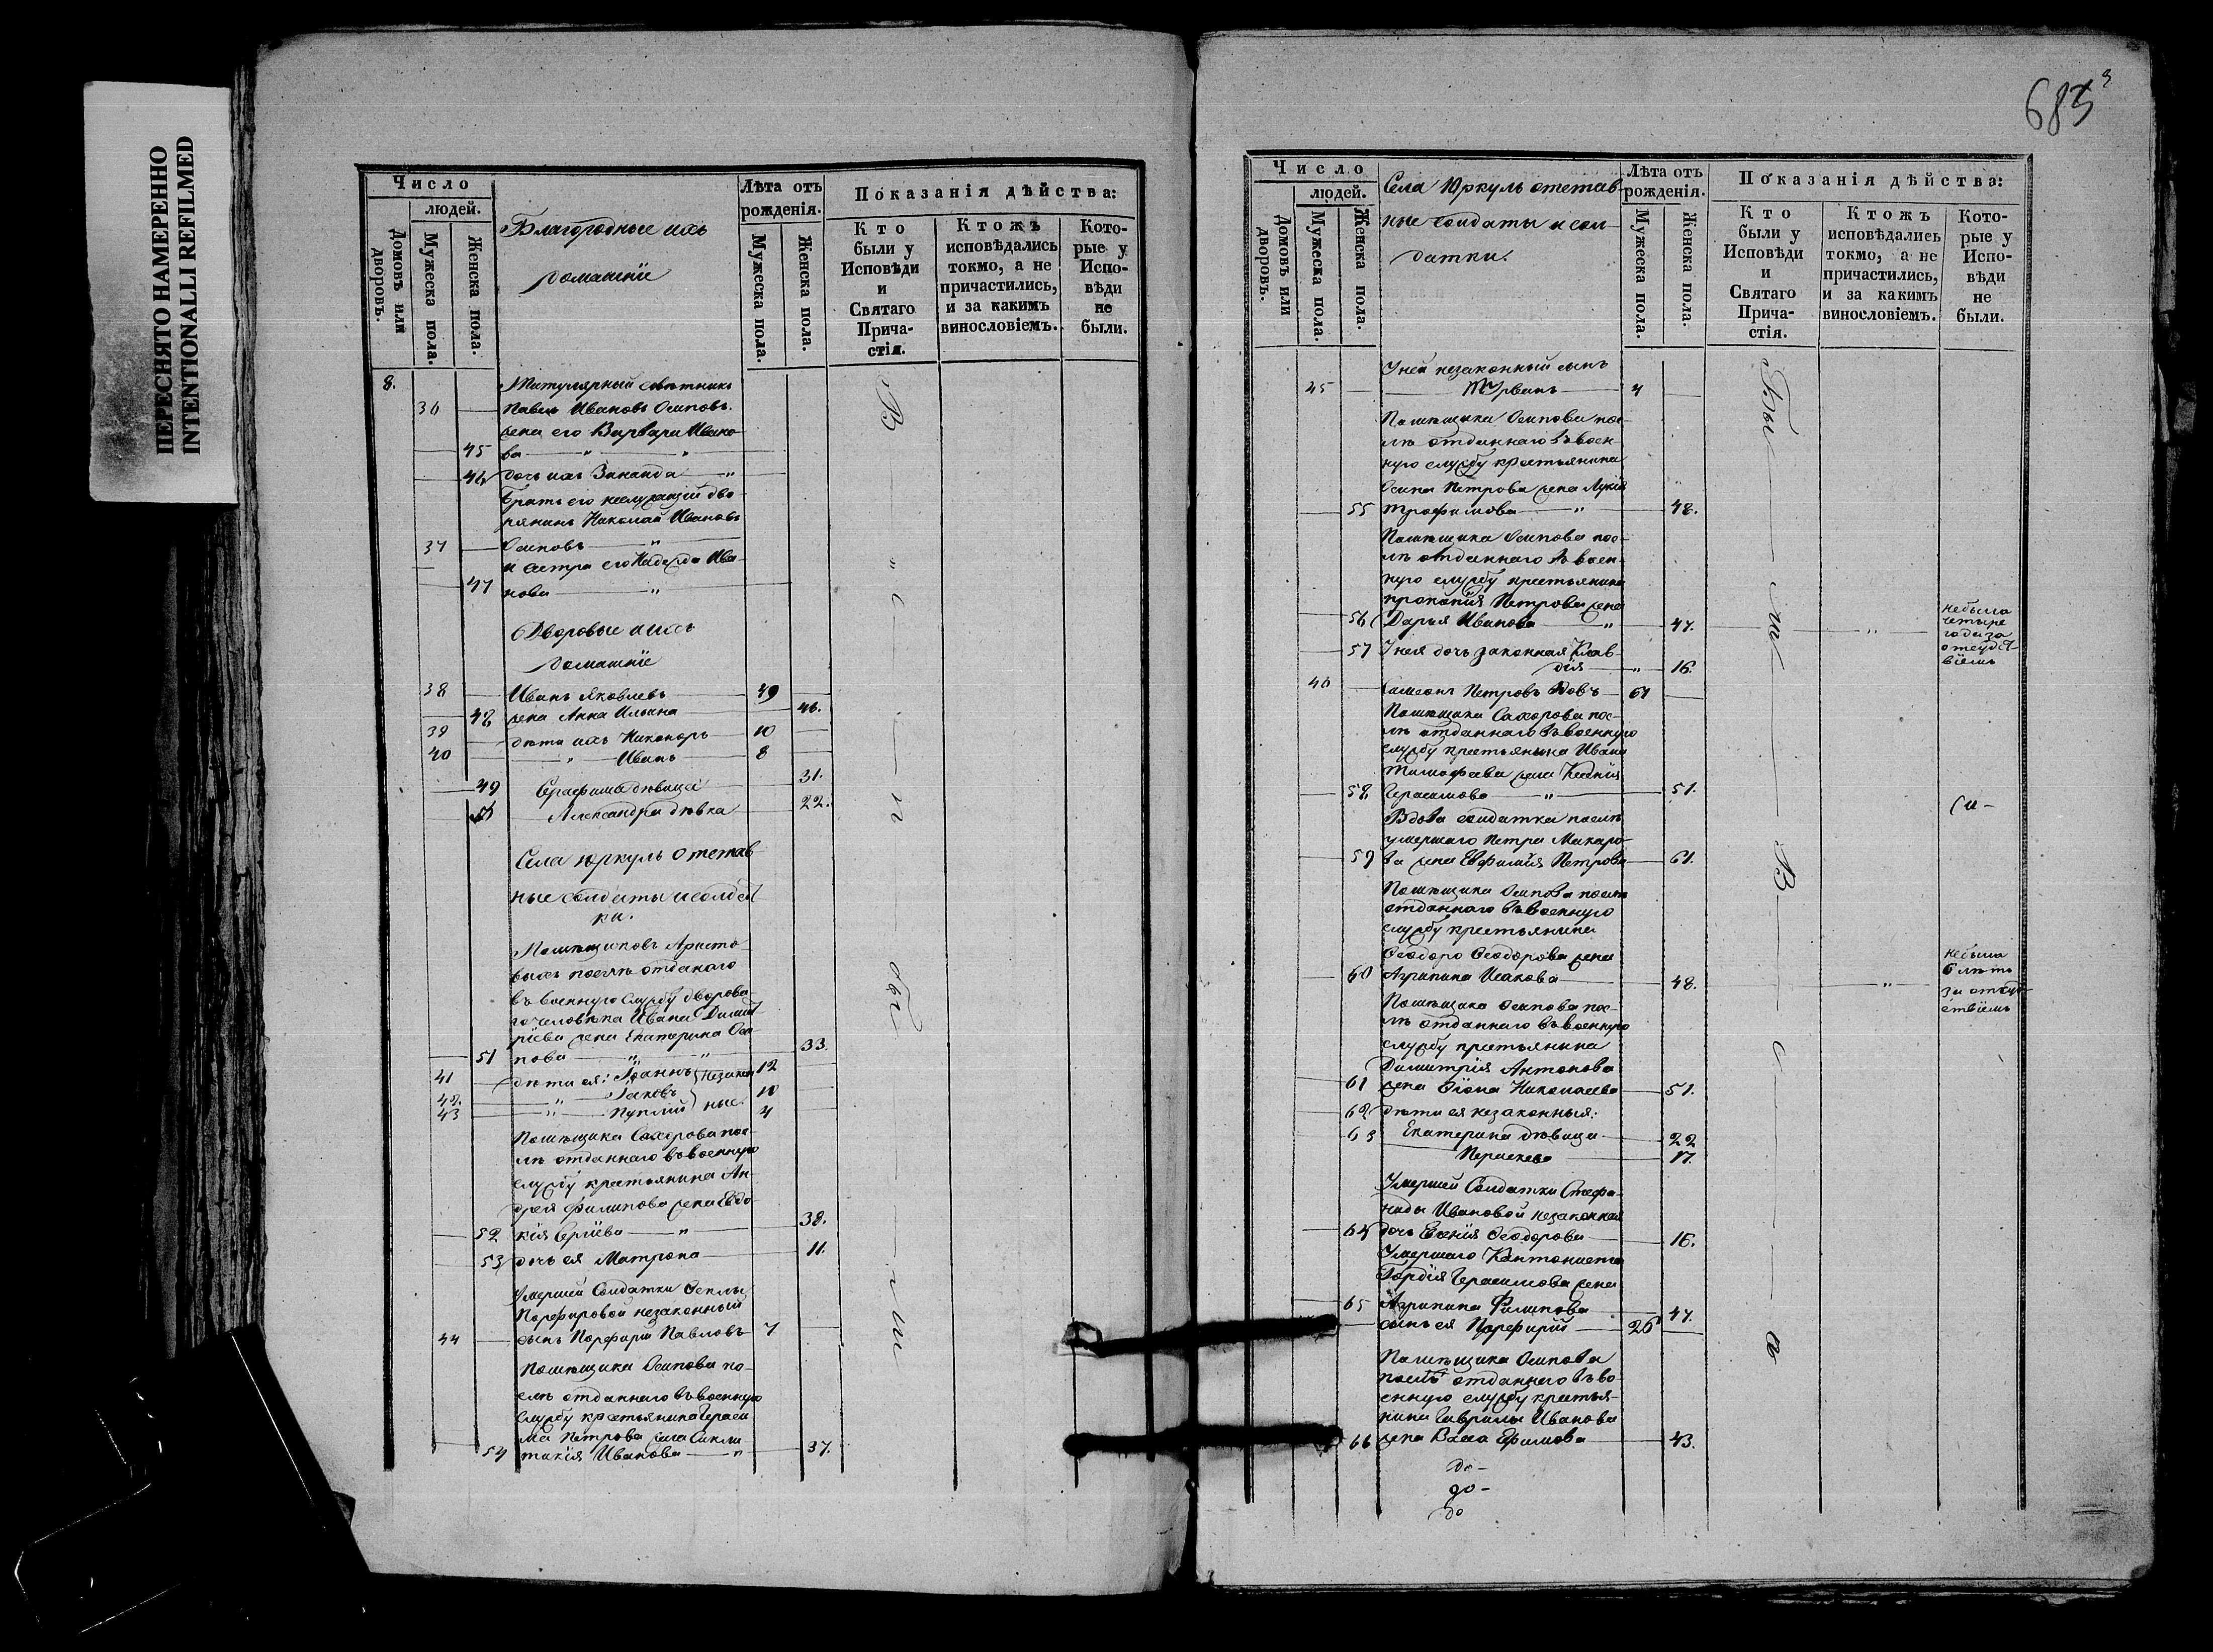 ПЕРЕСНЯТО НАМЕРЕННО
INTENTIONALLI REFILMED
Число
людей.
Домовъ или дворовъ.
Мужеска пола.
Женска пола.
Благородные ихъ
домашніе
Лѣта отъ
рожденія.
Мужеска пола.
Женска пола.
Показанія дѣйства:
Кто
были у
Исповѣди
и
Святаго
Прича-
стія.
Ктожъ
исповѣдались
токмо, а не
причастились,
и за какимъ
винословіемъ.
Кото-
рые у
Испо-
вѣди
не
были.
8. Титулярный совѣтникъ
36 Павелъ Ивановъ Осиповъ.
жена его Варвара Ивано-
45 ва — " — "
46 дочь ихъ Зинаида — "
Братъ его неслужащій дво-
рянинъ Николай Ивановъ
37 Осиповъ — "
и сестра его Надежда Ива-
47 нова — "
Дворовые и ихъ
домашніе
38 Иванъ Яковлевъ 49
48 жена Анна Ильина 46.
39 дѣти ихъ Никаноръ 10
40 " Иванъ 8
49 Серафима дѣвица 31.
50 Александра дѣвка 22.
Села Юркуль отстав-
ные солдаты и солдат
ки.
Помѣщиковъ Аристо-
выхъ послѣ отданаго
въ военную службу дворова-
го человѣка Ивана Димит
ріева жена Екатерина Оси-
51 пова — " — " 33.
41 дѣти ея: Іоаннъ незакон 12
42. " Іаковъ 10
43 " Пуплій ные 4
Помѣщика Сахарова пос-
лѣ отданнаго въ военную
службу крестьянина Ан-
дрея Филипова жена Евдо-
52 кія Сергіева — " 38.
53 дочь ея Матрона 11.
Умершей Солдатки Феклы
Порфировой незаконный
44 сынъ Порфирій Павловъ 7
Помѣщика Осипова по-
слѣ отданнаго въ военную
службу крестьянина Гераси
ма Петрова жена Сикли
54 тикія Иванова — " 37.
В " с п об ли
683
Число
людей.
Домовъ или дворовъ.
Мужеска пола.
Женска пола.
Села Юркуль отстав-
ные солдаты и сол-
датки.
Лѣта отъ
рожденія.
Мужеска пола.
Женска пола.
Показанія дѣйства:
Кто
были у
Исповѣди
и
Святаго
Прича-
стія.
Ктожъ
исповѣдались
токмо, а не
причастились,
и за какимъ
винословіемъ.
Кото-
рые у
Испо-
вѣди
не
были.
У ней незаконный сынъ
45 Урванъ 4
Помѣщика Осипова пос-
лѣ отданнаго въ воен-
ную службу крестьянина
Осипа Петрова жена Лукія
55 Трофимова — " 48.
Помѣщика Осипова пос-
лѣ отданнаго въ воен-
ную службу крестьянина
Прокопія Петрова жена
56 Дарья Иванова — " 47. небыла
четыре
года за
отсудст-
віемъ
57 У нея дочь законная Клав-
дія — " 16.
46 Самсонъ Петровъ вдовъ 61
Помѣщика Сахарова пос-
лѣ отданнаго въ военную
службу крестьянина Ивана
Тимофеева жена Ксенія
58. Герасимова — " 51.
Вдова солдатка послѣ
умершаго Петра Макаро-
59 ва жена Евфимія Петрова 61.
Помѣщика Осипова послѣ
отданнаго въ военную
службу крестьянина
Феодора Феодорова жена
60 Агрипина Исакова 48. небыла
6 лѣтъ
за отсуд-
ствіемъ
Помѣщика Осипова пос-
лѣ отданнаго въ военную
службу крестьянина
Димитрія Антонова
61 жена Фіона Николаева 51.
62 дѣти ея незаконныя:
63 Екатерина дѣвица 22
Параскева 17.
Умершей Солдатки Стефа-
ниды Ивановой незаконная
64 дочь Ксенія Феодорова 16.
Умершаго Кантониста
Гордія Герасимова жена
65 Агрипина Филипова 47.
сынъ ея Порфирій 26
Помѣщика Осипова
послѣ отданнаго въ во-
енную службу крестья-
нина Гаврилы Иванова
66 жена Васса Ефимова 43.
до-
до-
до
Бы ли В с